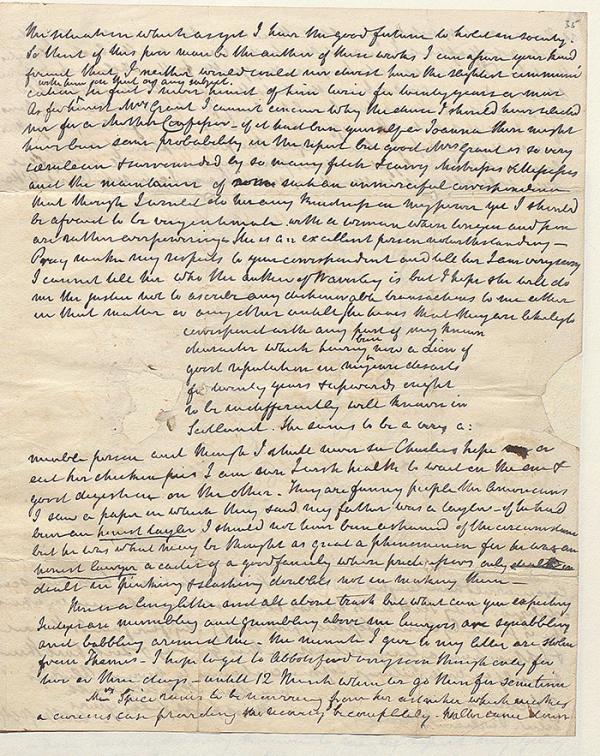 35
the situation which as yet I have the good fortune to hold in society.
So think if this poor man be the author of these works I can assure your kind
friend that I neither would could nor durst have the slightest communi
with him upon that or any subject.
cation in fact I never heard of him twice for twenty years or more
As for honest Mrs Grant I cannot conceive why the deuce I should have selected
her for a Mother Confessor - if it had been yourself or Joanna there might
have been some probability in the report but good Mrs Grant is so very
cerulean & surrounded by so many fetch & carry Mistresses & Misses
and the maintainer of such an unmerciful correspondence
that though I would do her any kindness in my power yet I should
be afraid to be very intimate with a woman whose tongue and pen
are rather overpowering. She is an excellent person notwithstanding -
Pray make my respects to your correspondent and tell her I am very sorry
I cannot tell her who the author of Waverley is but I hope she will do
me the justice not to ascribe any dishonorable transactions to me either
in that matter or any other untill she hears that they are likely to
correspond with any part of my known
character which having been now a Lion of
good reputation in my own desarts
for twenty years & upwards ought
to be indifferently well known in
Scotland. She seems to be a very a:
miable person and though I shall never see Charlies hope or
eat her chicken pies I am sure I wish health to wait on the one &
good digestion on the other. They are funny people the Americans
I saw a paper in which they said my father was a taylor - if he had
been an honest taylor I should not have been ashamed of the circumstance
but he was what may be thought as great a phenomenon for he was an
honest lawyer a cadet of a good family whose predecessors only
dealt in pinking & slashing doublets not in making them -
Here is a long letter and all about trash but what can you expect
Judges are mumbling and grumbling above me lawyers are squabbling
and babbling around me. The minutes I give to my letter are stolen
from Themis - I hope to get to Abbotsford very soon though only for
two or three days - untill 12 March when we go there for sometime
Mrs Spice seems to be recovering from her which makes
a curious case providing the recovery be compleat. Walter came down